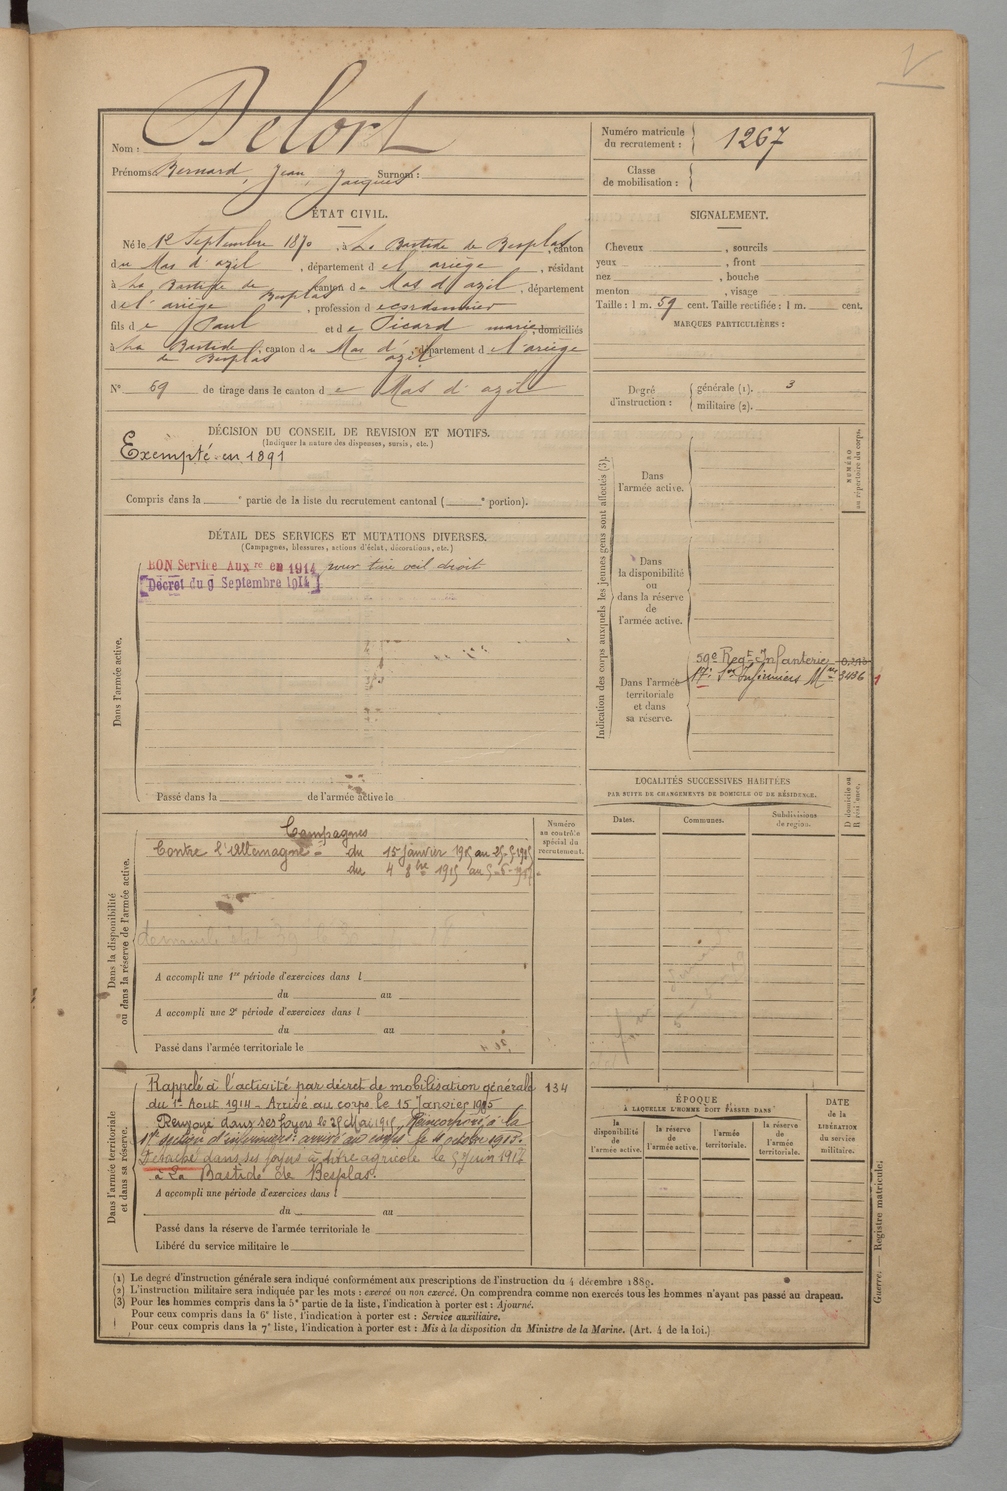 Nom : Delort
Prénoms : Bernard, Jean, Jacques Surnom :
Numéro matricule du recrutement : 1267
Classe de mobilisation :
ÉTAT CIVIL.
Né le 12 Septembre 1870, à La Bastide de Besplas, canton
du Mas d'azil, département de l'ariège, résidant
à La Bastide de Besplas canton du Mas d'azil, département
de l'ariège, profession de cordonnier
fils de Paul et de Picard marie, domiciliés
à La Bastide de Besplas, canton du Mas d'azil, département de l'ariège
N° 69 de tirage dans le canton de Mas d'azil
SIGNALEMENT.
Cheveux , sourcils
yeux , front
nez , bouche
menton , visage
Taille : 1 m. 59 cent. Taille rectifiée : 1 m. cent.
MARQUES PARTICULIÈRES :
Degré d'instruction : générale (1). 3
militaire (2).
DÉCISION DU CONSEIL DE REVISION ET MOTIFS.
(Indiquer la nature des dispenses, sursis, etc.)
Exempté en 1891
Compris dans la e partie de la liste du recrutement cantonal ( e portion).
DÉTAIL DES SERVICES ET MUTATIONS DIVERSES.
(Campagnes, blessures, actions d'éclat, décorations, etc.)
BON Service Aux re en 1914 pour taie oeil droit
Décret du 9 Septembre 1914
Dans l'armée active.
Passé dans la de l'armée active le
Indication des corps auxquels les jeunes gens sont affectés (3).
NUMÉRO au répertoire du corps.
Dans l'armée active.
Dans la disponibilité ou dans la réserve de l'armée active.
Dans l'armée territoriale et dans sa réserve.
59e Regt Infanterie
17e Son Infirmiers Mres 3436
LOCALITÉS SUCCESSIVES HABITÉES
PAR SUITE DE CHANGEMENTS DE DOMICILE OU DE RÉSIDENCE.
Dates. Communes. Subdivisions de région. D domicile ou R résidence.
Dans la disponibilité ou dans la réserve de l'armée active.
Numéro au contrôle spécial du recrutement.
Campagnes
Contre l'Allemagne - du 15 janvier 1915 au 25-5-1915
du 4 8bre 1915 au 5-6-1917
A accompli une 1re période d'exercices dans l
du au
A accompli une 2e période d'exercices dans l
du au
Passé dans l'armée territoriale le
Dans l'armée territoriale et dans sa réserve.
Rappelé à l'activité par décret de mobilisation générale 134
du 1er Aout 1914 - Arrivé au corps le 15 Janvier 1915
Renvoyé dans ses foyers le 25 Mai 1915 Réincorporé à la
17e section d'infirmiers arrivé au corps le 4 octobre 1915.
Détaché dans ses foyers à titre agricole le 5 Juin 1917
à La Bastide de Besplas.
A accompli une période d'exercices dans l
du au
Passé dans la réserve de l'armée territoriale le
Libéré du service militaire le
ÉPOQUE
À LAQUELLE L'HOMME DOIT PASSER DANS
la disponibilité de l'armée active. la réserve de l'armée active. l'armée territoriale. la réserve de l'armée territoriale.
DATE de la LIBÉRATION du service militaire.
(1) Le degré d'instruction générale sera indiqué conformément aux prescriptions de l'instruction du 4 décembre 1889.
(2) L'instruction militaire sera indiquée par les mots : exercé ou non exercé. On comprendra comme non exercés tous les hommes n'ayant pas passé au drapeau.
(3) Pour les hommes compris dans la 5e partie de la liste, l'indication à porter est : Ajourné.
Pour ceux compris dans la 6e liste, l'indication à porter est : Service auxiliaire.
Pour ceux compris dans la 7e liste, l'indication à porter est : Mis à la disposition du Ministre de la Marine. (Art. 4 de la loi.)
Guerre. — Registre matricule.